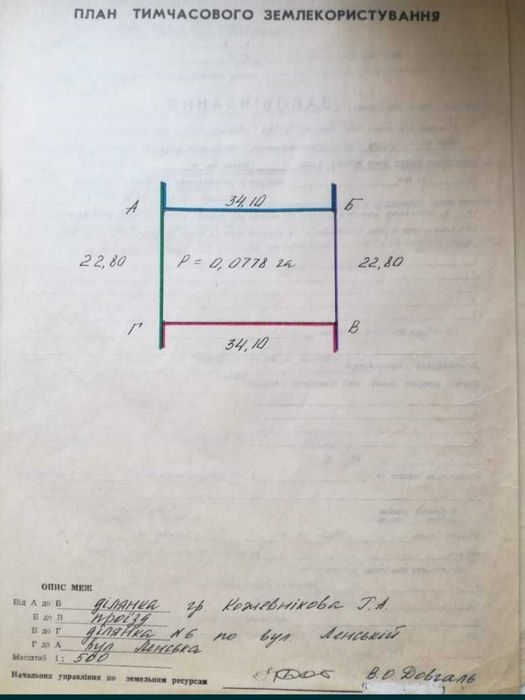 ПЛАН ТИМЧАСОВОГО ЗЕМЛЕКОРИСТУВАННЯ
А 34,10 Б
22,80 P = 0,0778 га 22,80
Г В
34,10
ОПИС МЕЖ
Від А до Б ділянка гр Кожевнікова Г.А.
Б до В проїзд
В до Г ділянка №6 по вул. Ленській
Г до А вул Ленська
Масштаб 1 : 500
Начальник управління по земельним ресурсам В.О Довгаль